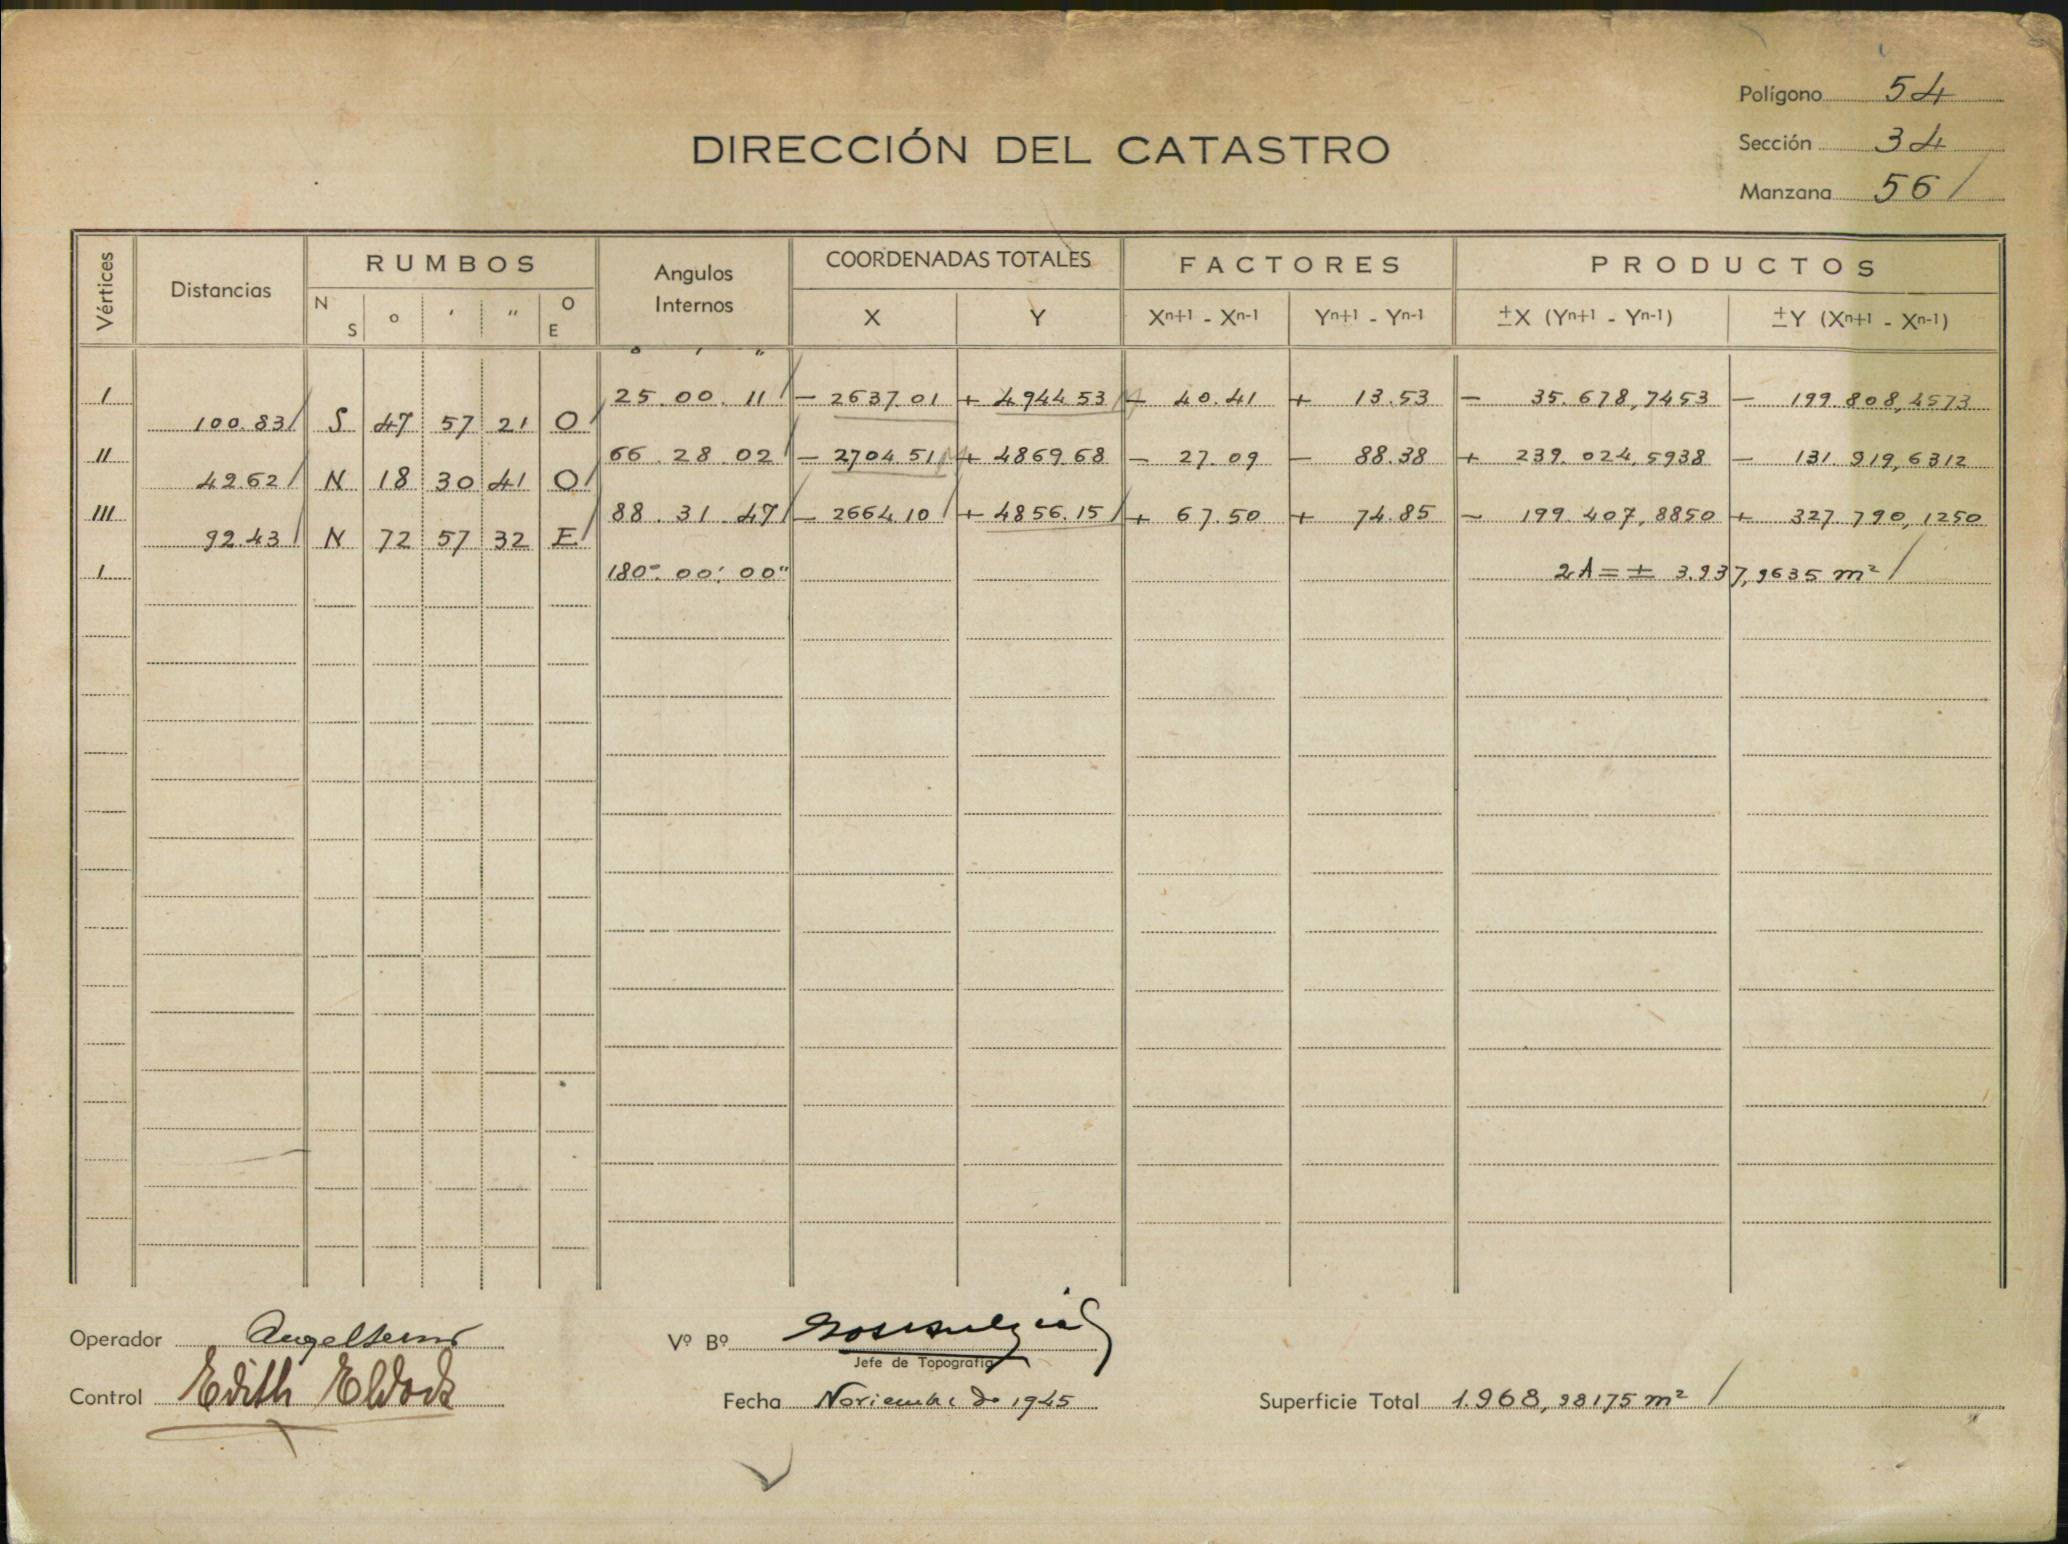 Polígono 54
DIRECCIÓN DEL CATASTRO
Sección 34
Manzana 56
Vértices Distancias RUMBOS Angulos Internos COORDENADAS TOTALES FACTORES PRODUCTOS
N S ° ' " O E X Y Xn+1 - Xn-1 Yn+1 - Yn-1 ±X (Yn+1 - Yn-1) ±Y (Xn+1 - Xn-1)
° ' "
I 25.00.11 - 2637.01 + 4944.53 - 40.41 + 13.53 - 35.678,7453 - 199.808,4573
100.83 S 47 57 21 O
II 66.28.02 - 2704.51 + 4869.68 - 27.09 - 88.38 + 239.024,5938 - 131.919,6312
49.62 N 18 30 41 O
III 88.31.47 - 2664.10 + 4856.15 + 67.50 + 74.85 - 199.407,8850 + 327.790,1250
92.43 N 72 57 32 E
I 180°.00'.00" 2A = ± 3.937,9635 m²
Operador
Vº Bº
Jefe de Topografía
Control Edith
Fecha Noviembre de 1945
Superficie Total 1.968,98175 m²